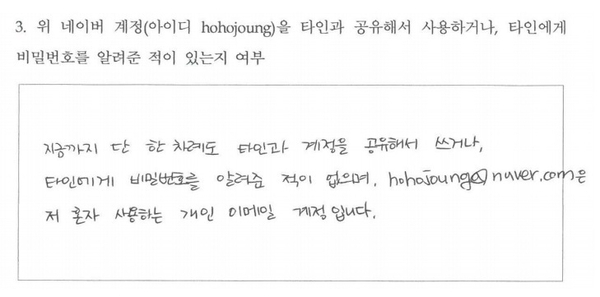 3. 위 네이버 계정(아이디 hohojoung)을 타인과 공유해서 사용하거나, 타인에게
비밀번호를 알려준 적이 있는지 여부
지금까지 단 한 차례도 타인과 계정을 공유해서 쓰거나,
타인에게 비밀번호를 알려준 적이 없으며, hohojoung@naver.com은
저 혼자 사용하는 개인 이메일 계정입니다.